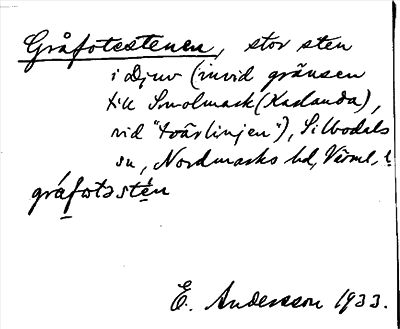 Gråfotestenen, stor sten
i Djuv (invid gränsen
till Smolmark (Karlanda),
vid "tvärlinjen"), Silbodals
sn, Nordmarks hd, Värml, l.
gráfotəstén
E. Andersson 1933.